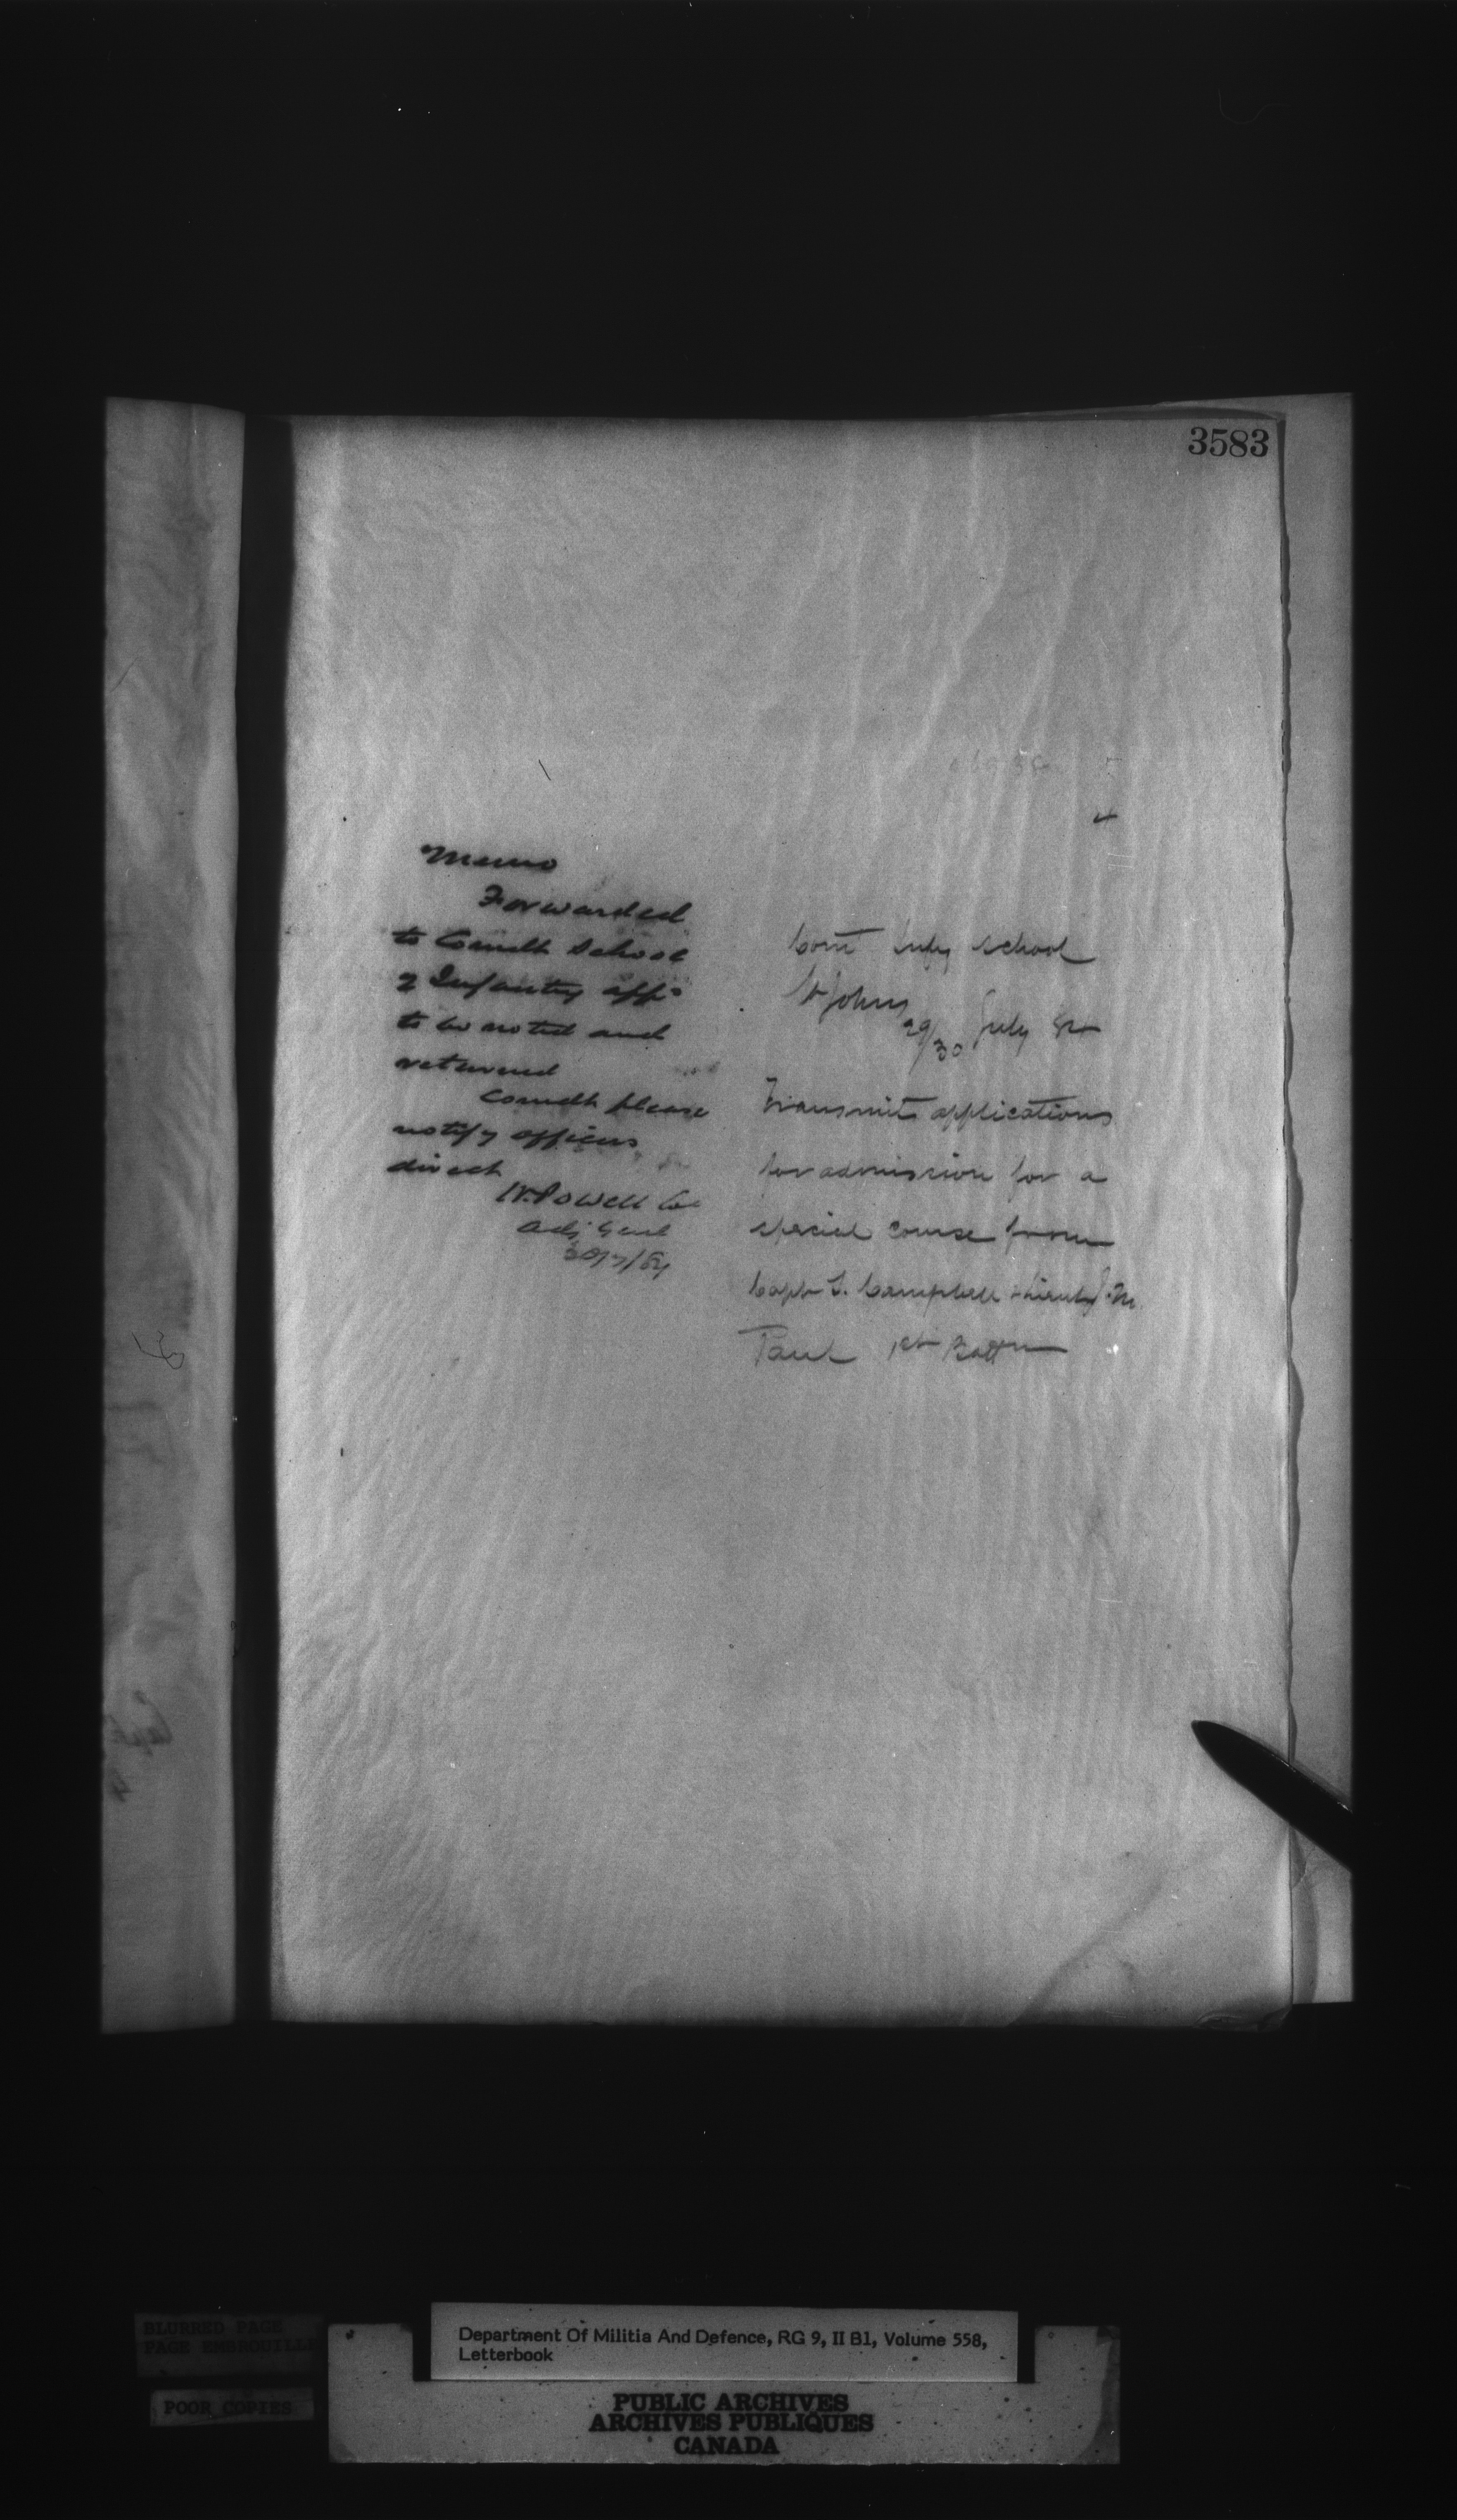 3583
Memo
Forwarded
to Comdt School
of Infantry appn
to be noted and
returned
Comdt please
notify officers
direct
W. Powell Col
Adj Genl
30/7/84
Comt Infy School
St Johns
29/30 July 84
Transmits applications
for admission for a
special course from
Capt T. Campbell & Lieut J. M.
Paul 1st Battn
BLURRED PAGE
PAGE EMBROUILL
POOR COPIES
Department Of Militia And Defence, RG 9, II B1, Volume 558,
Letterbook
PUBLIC ARCHIVES
ARCHIVES PUBLIQUES
CANADA